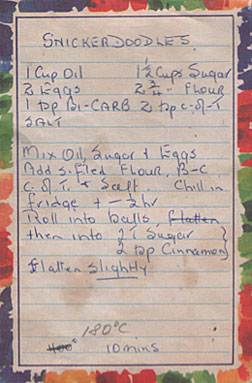 SNICKERDOODLES.
1 Cup Oil 1 1/2 Cups Sugar
2 Eggs 2 3/4 - Flour
1 tsp Bi-CARB 2 tsp c-of-T
SALT
Mix Oil, Sugar + Eggs
Add Sifted Flour, B-C
C. of T. + Salt. Chill in
fridge + - 1/2 hr
Roll into balls, flatten
then into { 2 T Sugar }
{ 2 tsp Cinnamon }
flatten slightly
180°C
10 mins